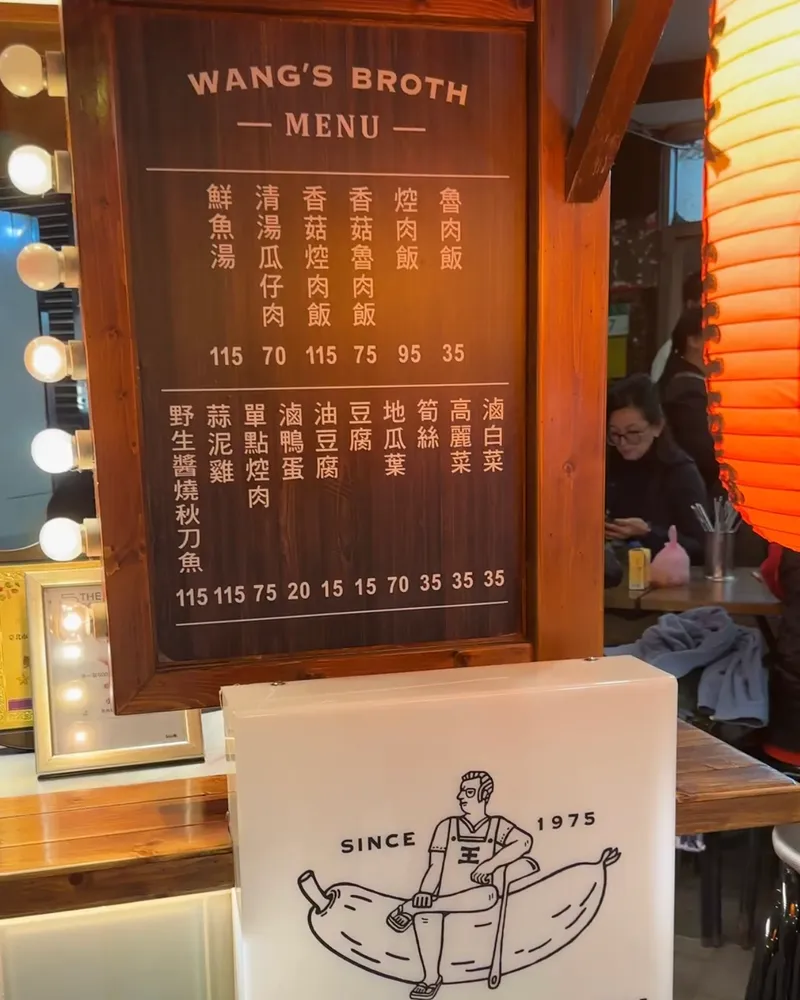 WANG'S BROTH
MENU
魯肉飯 35
焢肉飯 95
香菇魯肉飯 75
香菇焢肉飯 115
清湯瓜仔肉 70
鮮魚湯 115
滷白菜 35
高麗菜 35
筍絲 35
地瓜葉 70
豆腐 15
油豆腐 15
滷鴨蛋 20
單點焢肉 75
蒜泥雞 115
野生醬燒秋刀魚 115
THE
SINCE 1975
王